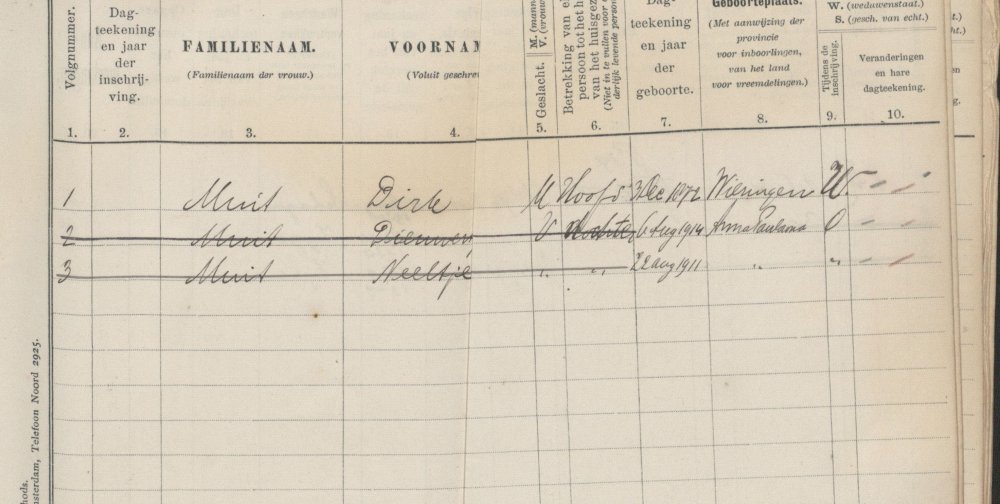 Volgnummer.
Dag-
teekening
en jaar
der
inschrij-
ving.
FAMILIENAAM.
(Familienaam der vrouw.)
VOORNAM
(Voluit geschre
Geslacht. M. (mann
V. (vrouw
Betrekking van e
persoon tot het h
van het huisgez
(Niet in te vullen voor
derlijk levende person
Dag-
teekening
en jaar
der
geboorte.
Geboorteplaats.
(Met aanwijzing der
provincie
voor inboorlingen,
van het land
voor vreemdelingen.)
W. (weduwenstaat.)
S. (gesch. van echt.)
Tijdens de
inschrijving.
Veranderingen
en hare
dagteekening.
1. 2. 3. 4. 5. 6. 7. 8. 9. 10.
1 Muit Dirk M Hoofd 3 Dec 1872 Wieringen W. " "
2 Muit Dieuwer V dochter 6 Aug 1914 Anna Paulowna O " "
3 Muit Neeltje " " 22 aug 1911 " " " "
msterdam, Telefoon Noord 2925.
hods.